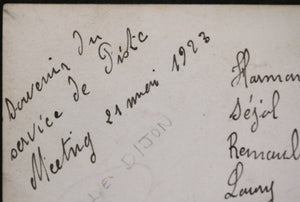 Souvenir du
service de Piste
Meeting 21 mai 1923
LE DIJON
Harman
Séjol
Renaul
Laury